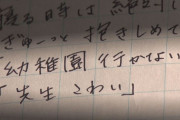 る時は絶対
ぎゅーっと抱きしめて
「幼稚園行かない
「先生こわい」